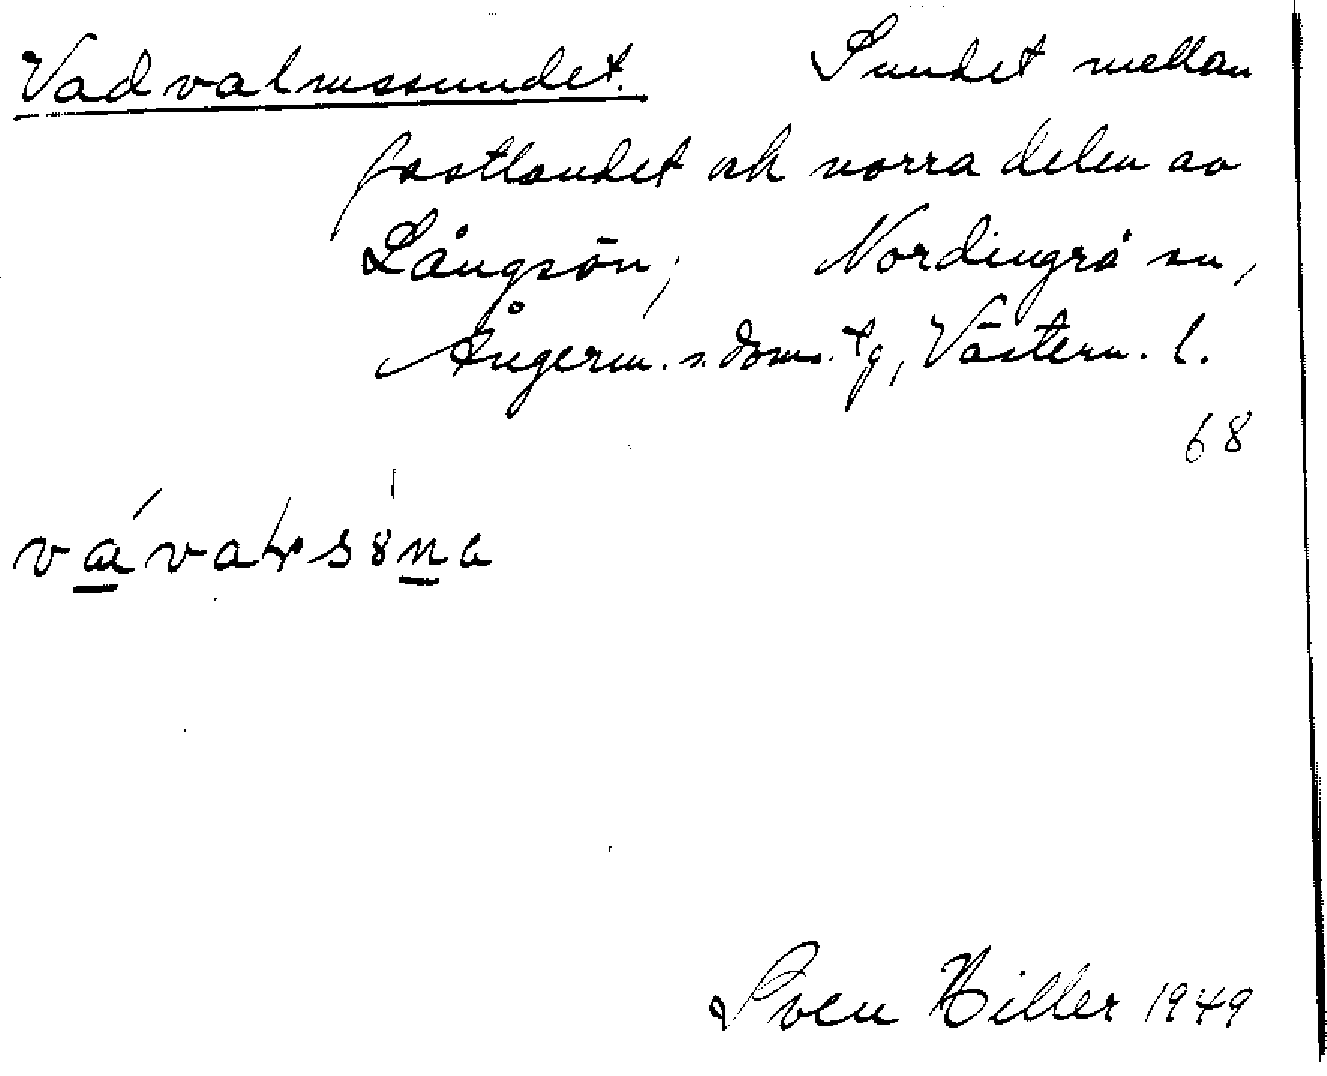 Vadvalmssundet. Sundet mellan
fastlandet och norra delen av
Långsön; Nordingrå sn,
Ångerm. s. doms. tg, Västern. l.
68
Sven Hiller 1949